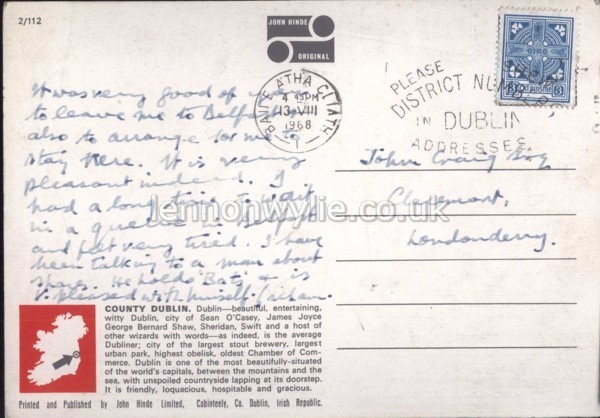 2/112
JOHN HINDE
ORIGINAL
BAILE ATHA CLIATH
4 PM
13 VIII
1968
1
PLEASE
DISTRICT
IN DUBLIN
ADDRESSES
EIRE
3
It was very good of you
to leave me to Belfast &
also to arrange for me to
stay here. It is very
pleasant indeed. I
had a long time to wait
in a queue in Belfast
and felt very tired. I have
been talking to a man about
shares. He holds Bats & is
v. pleased with himself.
John Craig Esq
Claremont,
Londonderry.
lennonwylie.co.uk
COUNTY DUBLIN. Dublin—beautiful, entertaining,
witty Dublin, city of Sean O'Casey, James Joyce
George Bernard Shaw, Sheridan, Swift and a host of
other wizards with words—as indeed, is the average
Dubliner; city of the largest stout brewery, largest
urban park, highest obelisk, oldest Chamber of Com-
merce. Dublin is one of the most beautifully-situated
of the world's capitals, between the mountains and the
sea, with unspoiled countryside lapping at its doorstep.
It is friendly, loquacious, hospitable and gracious.
Printed and Published by John Hinde Limited, Cabinteely, Co. Dublin, Irish Republic.